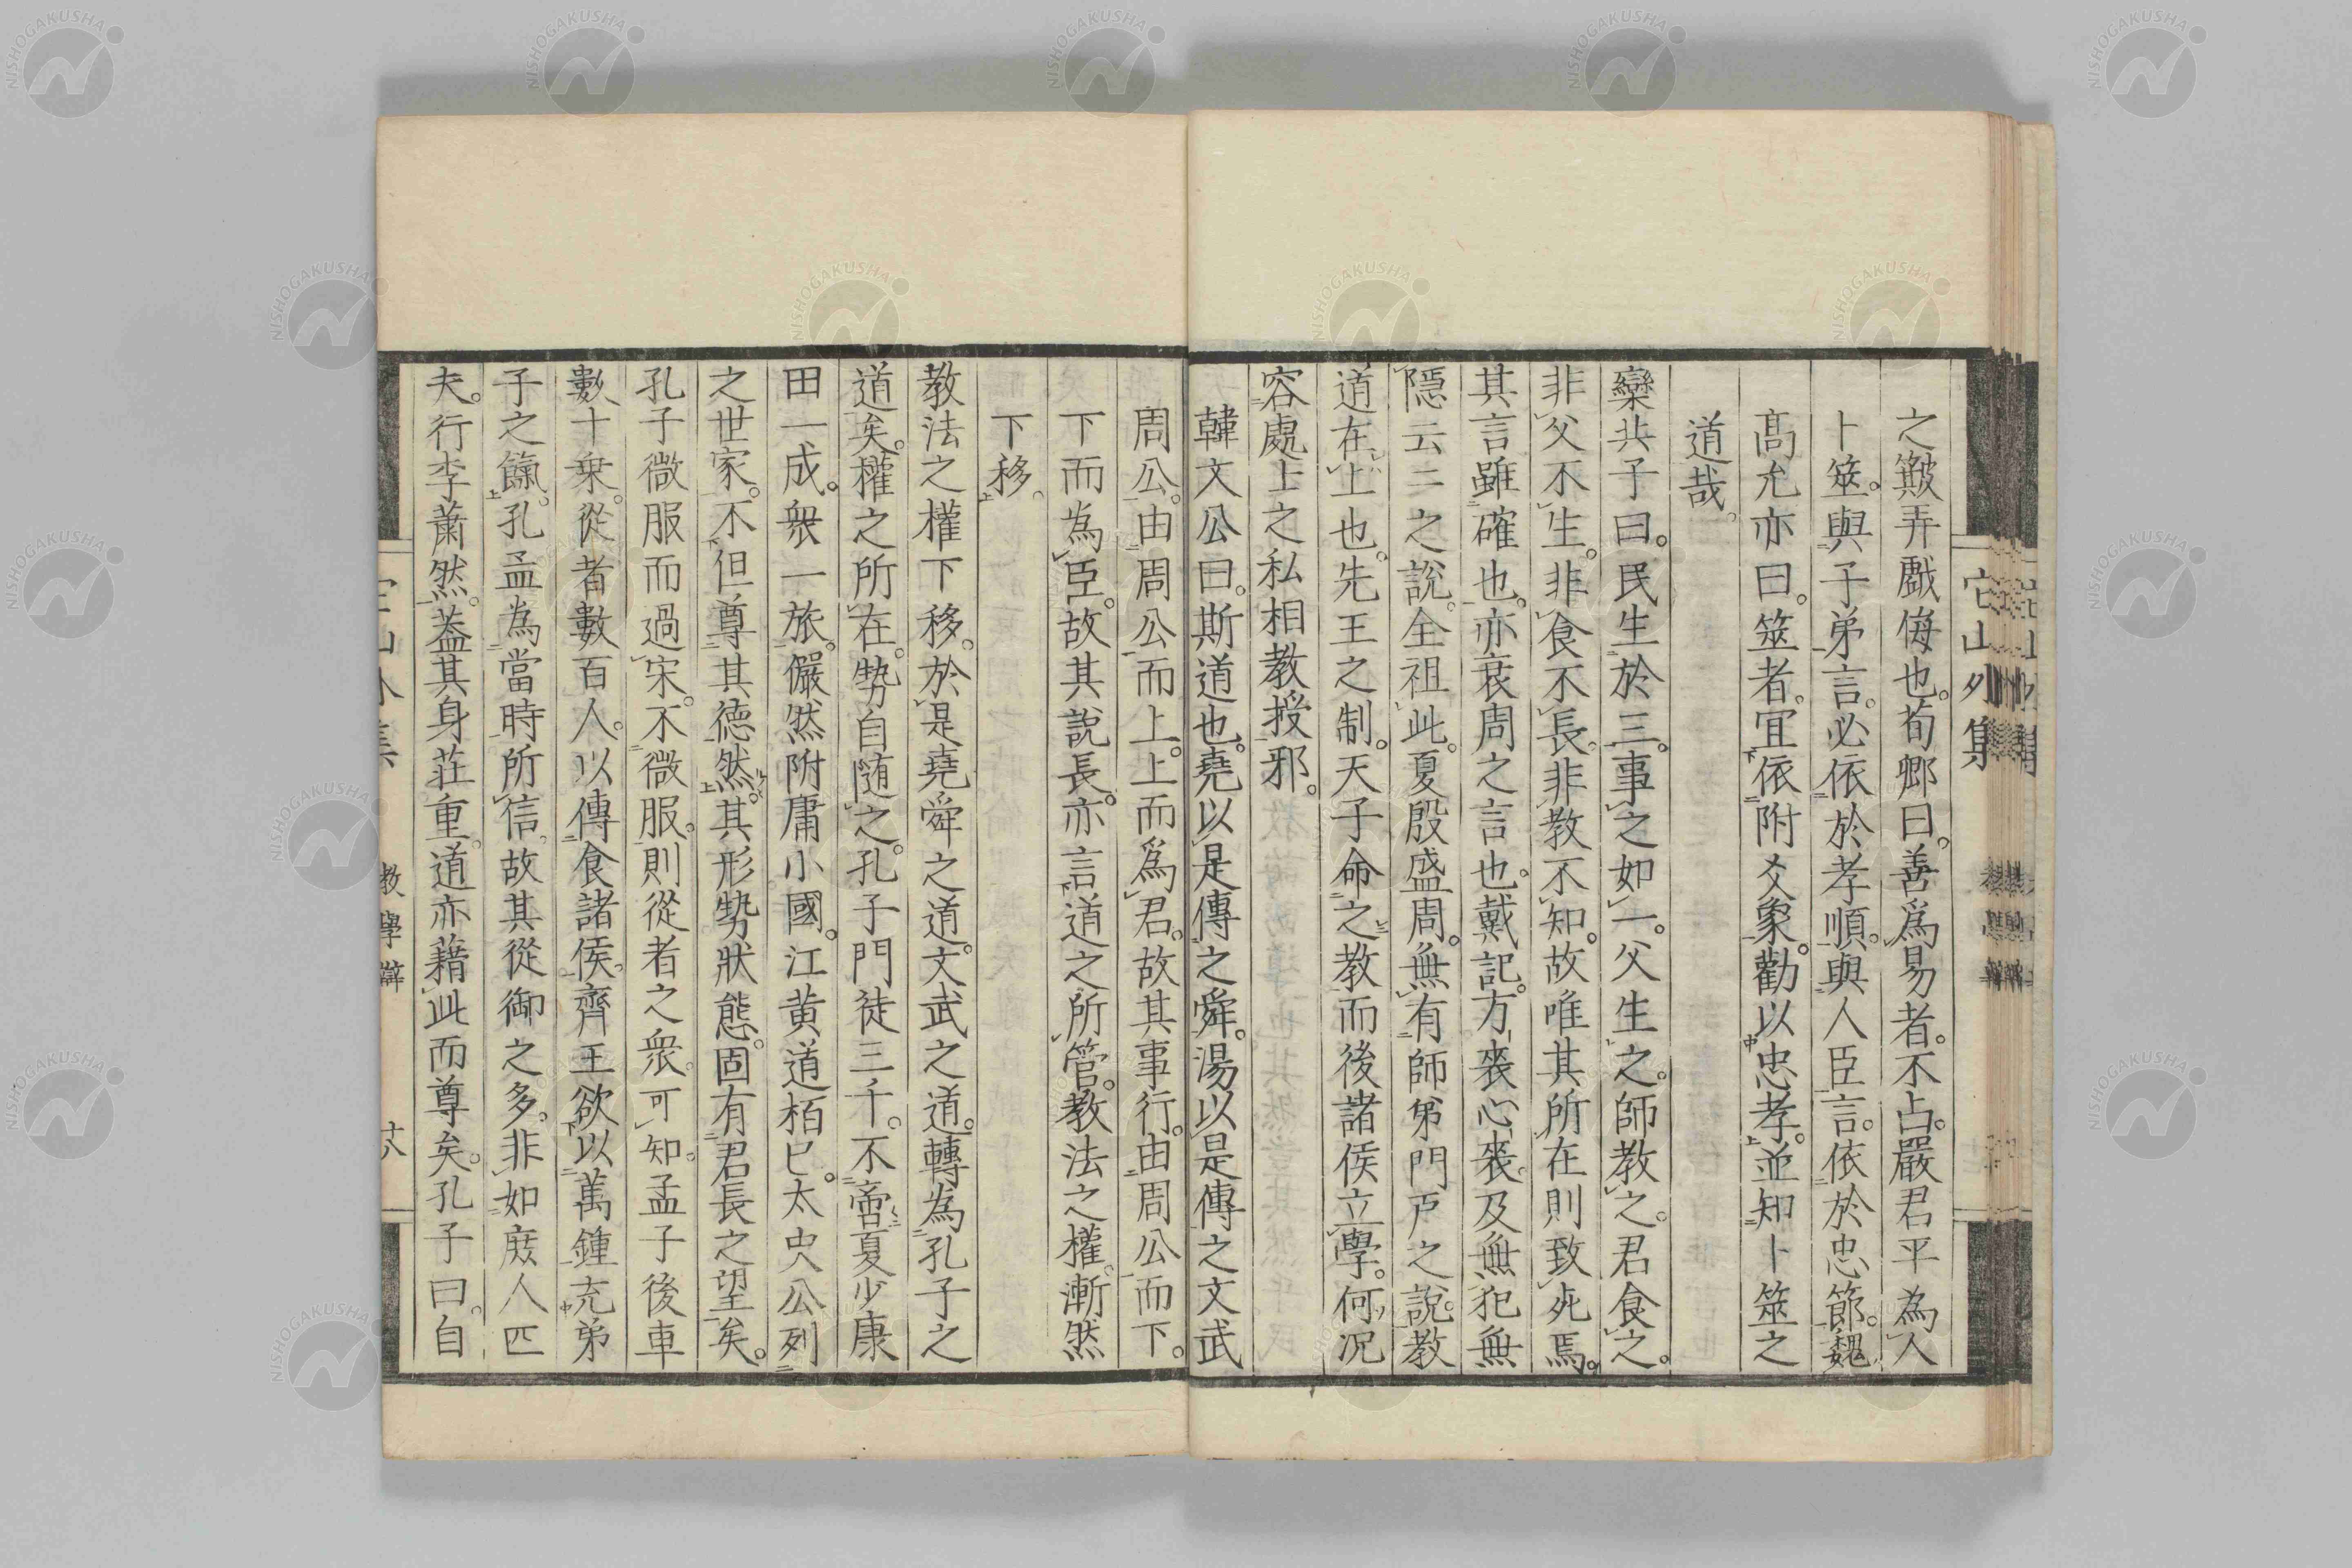 之欺弄戲侮也。荀卿曰。善爲易者。不占。嚴君平為人
卜筮。與子弟言。必依於孝順。與人臣言。依於忠節。魏
髙允亦曰。筮者。冝依附爻象。勸以忠孝。並知卜筮之
道哉。
欒共子曰。民生於三。事之如一。父生之。師教之。君食之。
非父不生。非食不長。非教不知。故唯其所在則致死焉。
其言雖確也。亦衰周之言也。戴記。方喪心喪。及無犯無
隱云云之說。全祖此。夏殷盛周。無有師弟門戸之說。教
道在上也。先王之制。天子命之教而後諸侯立學。何況
容處士之私相教授邪。
韓文公曰。斯道也。堯以是傳之舜。湯以是傳之文武
周公。由周公而上。上而爲君。故其事行。由周公而下。
下而為臣。故其說長。亦言道之所管。教法之權。漸然
下移。
教法之權下移。於是堯舜之道。文武之道。轉為孔子之
道矣。權之所在。勢自随之。孔子門徒三千。不啻夏少康
田一成。衆一旅。儼然附庸小國。江黄道栢已。太史公列
之世家。不但尊其徳然。其形勢狀態。固有君長之望矣。
孔子微服而過宋。不微服。則從者之衆。可知。孟子後車
數十乗。從者數百人。以傳食諸侯。齊王欲以萬鍾充弟
子之餼。孔孟為當時所信。故其從御之多。非如庻人匹
夫。行李蕭然。葢其身莊重。道亦藉此而尊矣。孔子曰。自
它山外集
教學辯